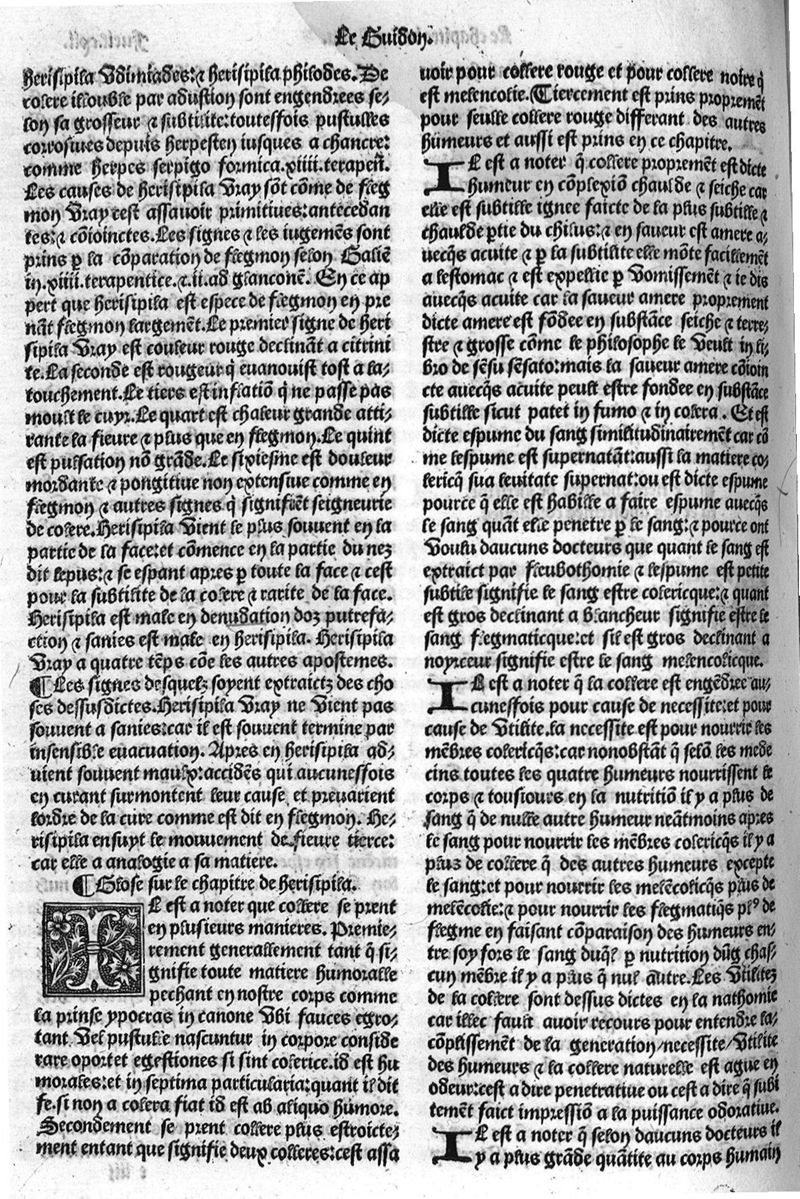 Le Guidon.
herisipila Vdimiades: ⁊ herisipila philodes. De
colere illouble par adustion sont engendrees se⸗
lon sa grosseur ⁊ subtilite: toutesfois pustulles
corrosiues depuis herpesten iusques a chancre:
comme herpes serpigo formica.xiiii.terapeñ.
Les causes de herisipila Vray sõt cõme de fleg
mon Vray cest assauoir primitiues: antecedan
tes: ⁊ cõioinctes. Les signes ⁊ les iugemẽs sont
prins p̱ la cõparation de flegmon selon Galiẽ
in.xiiii.terapentice. ⁊.ii.ad glanconẽ. En ce ap
pert que herisipila est espece de flegmon en pre
nãt flegmon largemẽt. Le premier signe de heri
sipila Vray est couleur rouge declinãt a citrini
te. La seconde est rougeur q̃ euanouist tost a la⸗
touchement. Le tiers est inflatiõ q̃ ne passe pas
moult le cuyr. Le quart est chaleur grande atti⸗
rante la fieure ⁊ plus que en flegmon. Le quint
est pulsation nõ grãde. Le sixiesme est douleur
mordante ⁊ pongitiue non extensiue comme en
flegmon ⁊ autres signes q̃ signifiẽt seigneurie
de colere. Herisipila Vient le plus souuent en la
partie de la face: et cõmence en la partie du nez
dit lepus: ⁊ se espant apres p̱ toute la face ⁊ cest
pour la subtilite de la colere ⁊ rarite de la face.
Herisipila est male en denudation doz putrefa⸗
ction ⁊ sanies est male en herisipila. Herisipila
Vray a quatre tẽps cõe les autres apostemes.
¶ Les signes desquelz soyent extraictz des cho
ses dessusdictes. Herisipila Vray ne Vient pas
souuent a sanies: car il est souuent termine par
insensible euacuation. Apres en herisipila ad⸗
uient souuent maulx: accidẽs qui aucunesfois
en curant surmontent leur cause et preuarient
lordre de la cure comme est dit en flegmon. He⸗
risipila ensuyt le mouuement de fieure tierce:
car elle a analogie a sa matiere.
¶ Glose sur le chapitre de herisipila.
IL est a noter que collere se prent
en plusieurs manieres. Premie⸗
rement generallement tant q̃ si⸗
gnifie toute matiere humoralle
pechant en nostre corps comme
la prinse ypocras in canone Vbi fauces egro⸗
tant Vel pustulle nascuntur in corpore conside
rare oportet egestiones si sint colerice. id est hu
morales: et in septima particularia: quant il dit
se. si non a colera fiat id est ab aliquo humore.
Secondement se prent collere plus estroicte⸗
ment entant que signifie deux colleres: cest assa
uoir pour collere rouge et pour collere noire q̃
est melencolie. Tiercement est prins propremẽt
pour seulle collere rouge differant des autres
hũmeurs et aussi est prins en ce chapitre.
IL est a noter q̃ collere propremẽt est dicte
humeur en cõplexiõ chaulde ⁊ seiche car
elle est subtille ignee faicte de la plus subtille ⁊
chaulde p̱tie du chilus: ⁊ en saueur est amere a⸗
uecq̃s acuite ⁊ p̱ la subtilite elle mõte facillemẽt
a lestomac ⁊ est expellie p̱ Vomissemẽt ⁊ ie dis
auecq̃s acuite car la saueur amere proprement
dicte amere est fõdee en substãce seiche ⁊ terre⸗
stre ⁊ grosse cõme le philosophe le Veult in li⸗
bro de sẽsu sẽsato: mais la saueur amere cõioin
cte auecq̃s acuite peult estre fondee en substãce
subtille sicut patet in fumo ⁊ in colera. Et est
dicte espume du sang similitudinairemẽt car cõ
me lespume est supernatãt: aussi la matiere co⸗
lericq̃ sua leuitate supernat: ou est dicte espume
pource q̃ elle est habille a faire espume auecq̃s
le sang quãt elle penetre p̱ le sang: ⁊ pource ont
Voulu daucuns docteurs que quant le sang est
extraict par fleubothomie ⁊ lespume est petite
subtile signifie le sang estre colericque: ⁊ quant
est gros declinant a blancheur signifie estre le
sang flegmaticque: et sil est gros declinant a
noyrceur signifie estre le sang melencolicque.
IL est a noter q̃ la collere est engẽdree au⸗
cunesfois pour cause de necessite: et pour
cause de Vtilite. la necessite est pour nourrir les
mẽbres colericq̃s: car nonobstãt q̃ selõ les mede
cins toutes les quatre humeurs nourrissent le
corps ⁊ tousiours en la nutritiõ il y a plus de
sang q̃ de nulle autre humeur neãtmoins apres
le sang pour nourrir les mẽbres colericq̃s il y a
pluz de collere q̃ des autres humeurs excepte
le sang: et pour nourrir les melẽcolicq̃s plus de
melẽcolie: ⁊ pour nourrir les flegmatiq̃s plꝰ de
flegme en faisant cõparaison des humeurs en⸗
tre soy fors le sang duq̃l p̱ nutrition dũg chas⸗
cun mẽbre il y a plus q̃ nul autre. Les Vtilitez
de la colere sont dessus dictes en la nathomie
car illec fault auoir recours pour entendre la⸗
cõplissemẽt de la generation/necessite/Vtilite
des humeurs ⁊ la collere naturelle est ague en
odeur: cest a dire penetratiue ou cest a dire q̃ subi
temẽt faict impressiõ a la puissance odoratiue.
IL est a noter q̃ selon daucuns docteurs il
y a plus grãde quãtite au corps humain